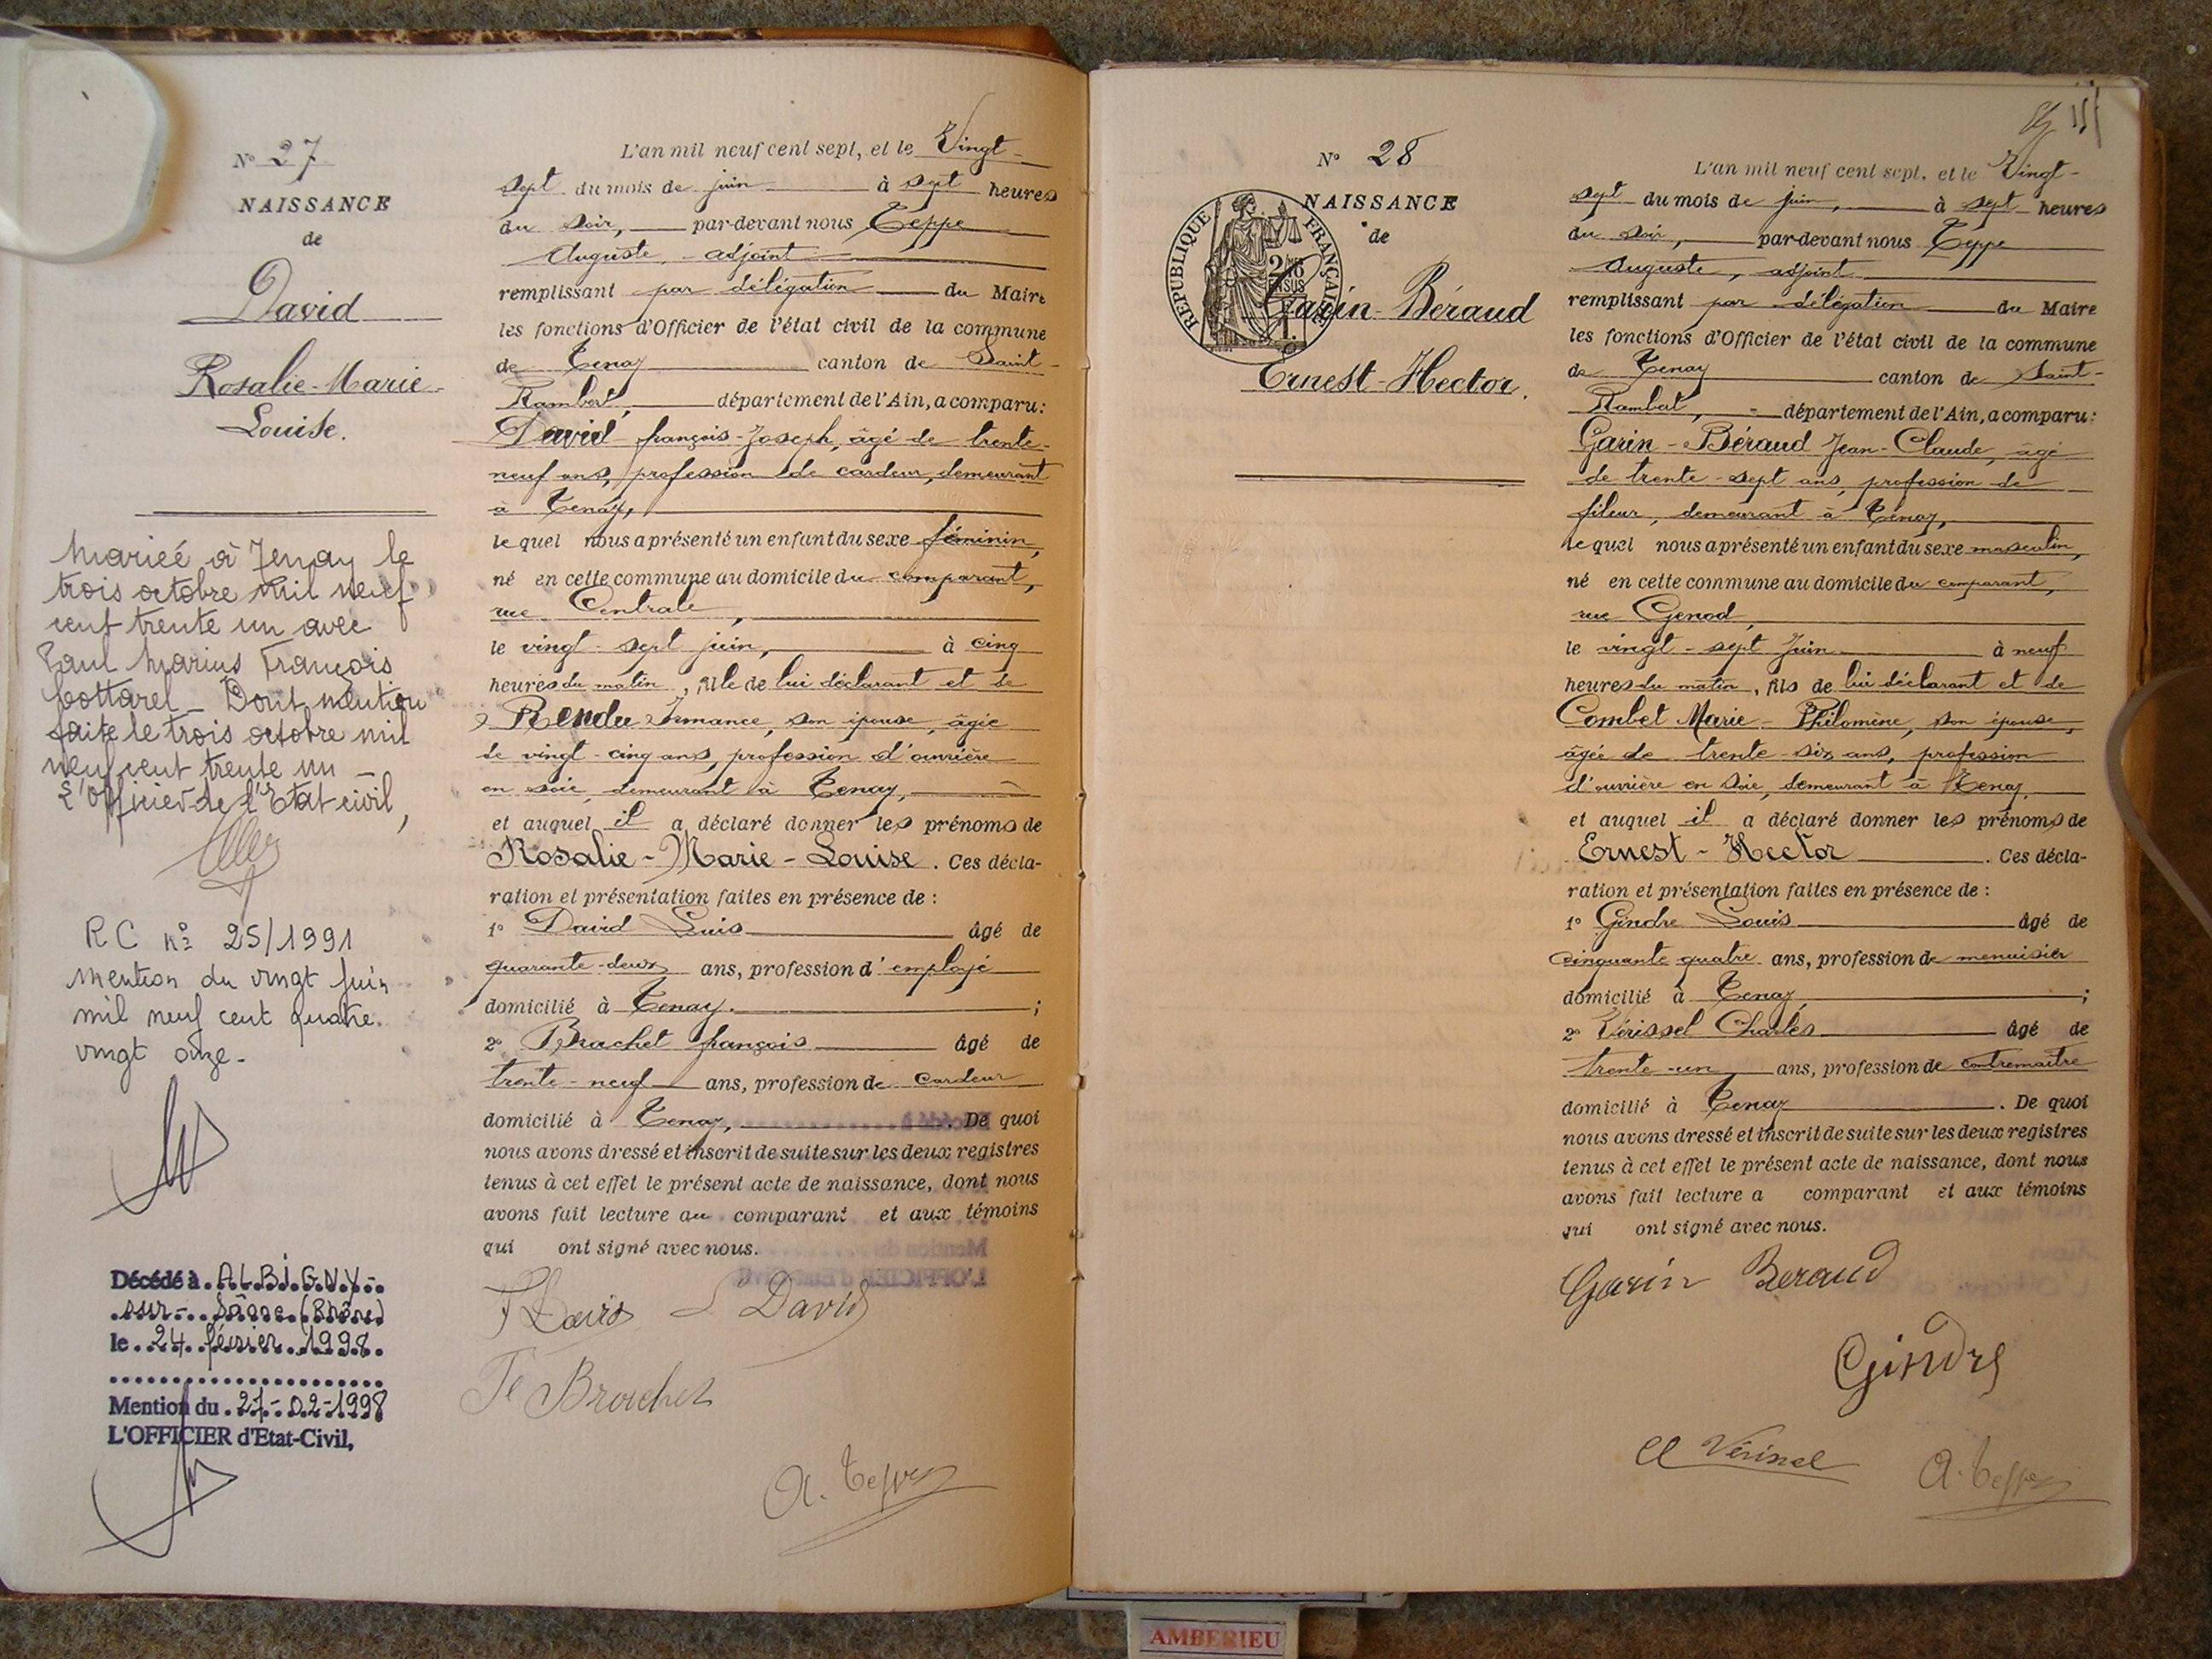 N° 27
NAISSANCE
de
David
Rosalie-Marie-
Louise.
Mariée à Tenay le
trois octobre mil neuf
cent trente un avec
Paul Marius François
Cottarel _ Dont mention
faite le trois octobre mil
neuf cent trente un _
L'Officier de l'Etat civil,
R C n° 25/1991
Mention du vingt juin
mil neuf cent quatre.
vingt onze.
Décédé à ALBIGNY-
sur-Saône (Rhône)
le 24 février 1998.
Mention du 27-02-1998
L'OFFICIER d'Etat-Civil,
L'an mil neuf cent sept, et le Vingt-
sept du mois de juin à sept heures
du soir, par-devant nous Teppe
Auguste, adjoint
remplissant par délégation du Maire
les fonctions d'Officier de l'état civil de la commune
de Tenay canton de Saint-
Rambert, département de l'Ain, a comparu:
David françois-Joseph, âgé de trente-
neuf ans, profession de cardeur, demeurant
à Tenay,
le quel nous a présenté un enfant du sexe féminin,
né en cette commune au domicile du comparant,
rue Centrale,
le vingt-sept juin, à cinq
heures du matin, fille de lui déclarant et de
Rendu, son épouse, âgée
de vingt-cinq ans, profession d'ouvrière
en soie, demeurant à Tenay,
et auquel il a déclaré donner les prénoms de
Rosalie-Marie-Louise. Ces décla-
ration et présentation faites en présence de :
1° David Louis âgé de
quarante-deux ans, profession d'employé
domicilié à Tenay. ;
2° Brachet françois âgé de
trente-neuf ans, profession de cardeur
domicilié à Tenay, . De quoi
nous avons dressé et inscrit de suite sur les deux registres
tenus à cet effet le présent acte de naissance, dont nous
avons fait lecture au comparant et aux témoins
qui ont signé avec nous.
F David L David
Brachet
A. Teppe
N° 28
NAISSANCE
de
RÉPUBLIQUE FRANÇAISE
Garin-Béraud
Ernest-Hector.
L'an mil neuf cent sept, et le Vingt-
sept du mois de juin, à sept heures
du soir, par-devant nous Teppe
Auguste, adjoint
remplissant par délégation du Maire
les fonctions d'Officier de l'état civil de la commune
de Tenay canton de Saint-
Rambert, département de l'Ain, a comparu:
Garin-Béraud Jean-Claude, âgé
de trente-sept ans, profession de
fileur, demeurant à Tenay,
le quel nous a présenté un enfant du sexe masculin,
né en cette commune au domicile du comparant,
rue Genod,
le vingt-sept Juin à neuf
heures du matin, fils de lui déclarant et de
Combet Marie-Philomène, son épouse,
âgée de trente-six ans, profession
d'ouvrière en soie, demeurant à Tenay.
et auquel il a déclaré donner les prénoms de
Ernest-Hector . Ces décla-
ration et présentation faites en présence de :
1° Gindre Louis âgé de
cinquante quatre ans, profession de menuisier
domicilié à Tenay, ;
2° Vérissel Charles âgé de
trente-un ans, profession de contremaître
domicilié à Tenay . De quoi
nous avons dressé et inscrit de suite sur les deux registres
tenus à cet effet le présent acte de naissance, dont nous
avons fait lecture a comparant et aux témoins
qui ont signé avec nous.
Garin Beraud
Gindre
A. Teppe
AMBERIEU